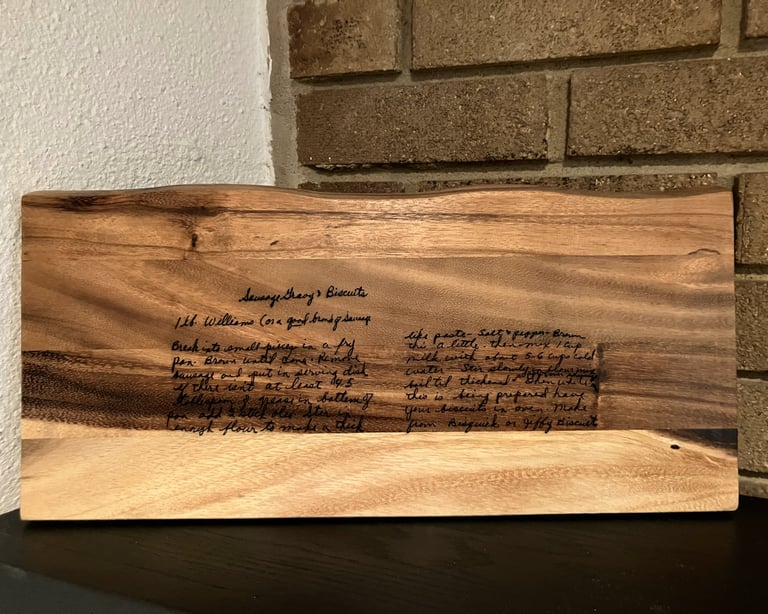 Sausage Gravy & Biscuits
1 lb. Williams (or a good brand of Sausage
Break into small pieces in a fry
pan. Brown until done. Remove
sausage and put in serving dish
if there isn't at least 4-5
of grease in bottom of
pan add stick oleo. Stir in
enough flour to make a thick
like paste - Salt & pepper - Brown
this a little. then mix 1 cup
milk with about 5-6 cups cold
water. Stir slowly
boil til thickend - When
this is being prepared have
your biscuits in oven. Made
from Bisquick or Jiffy Biscuit